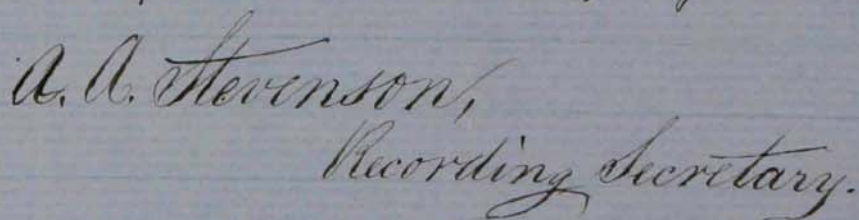 A. A. Stevenson,
Recording Secretary.